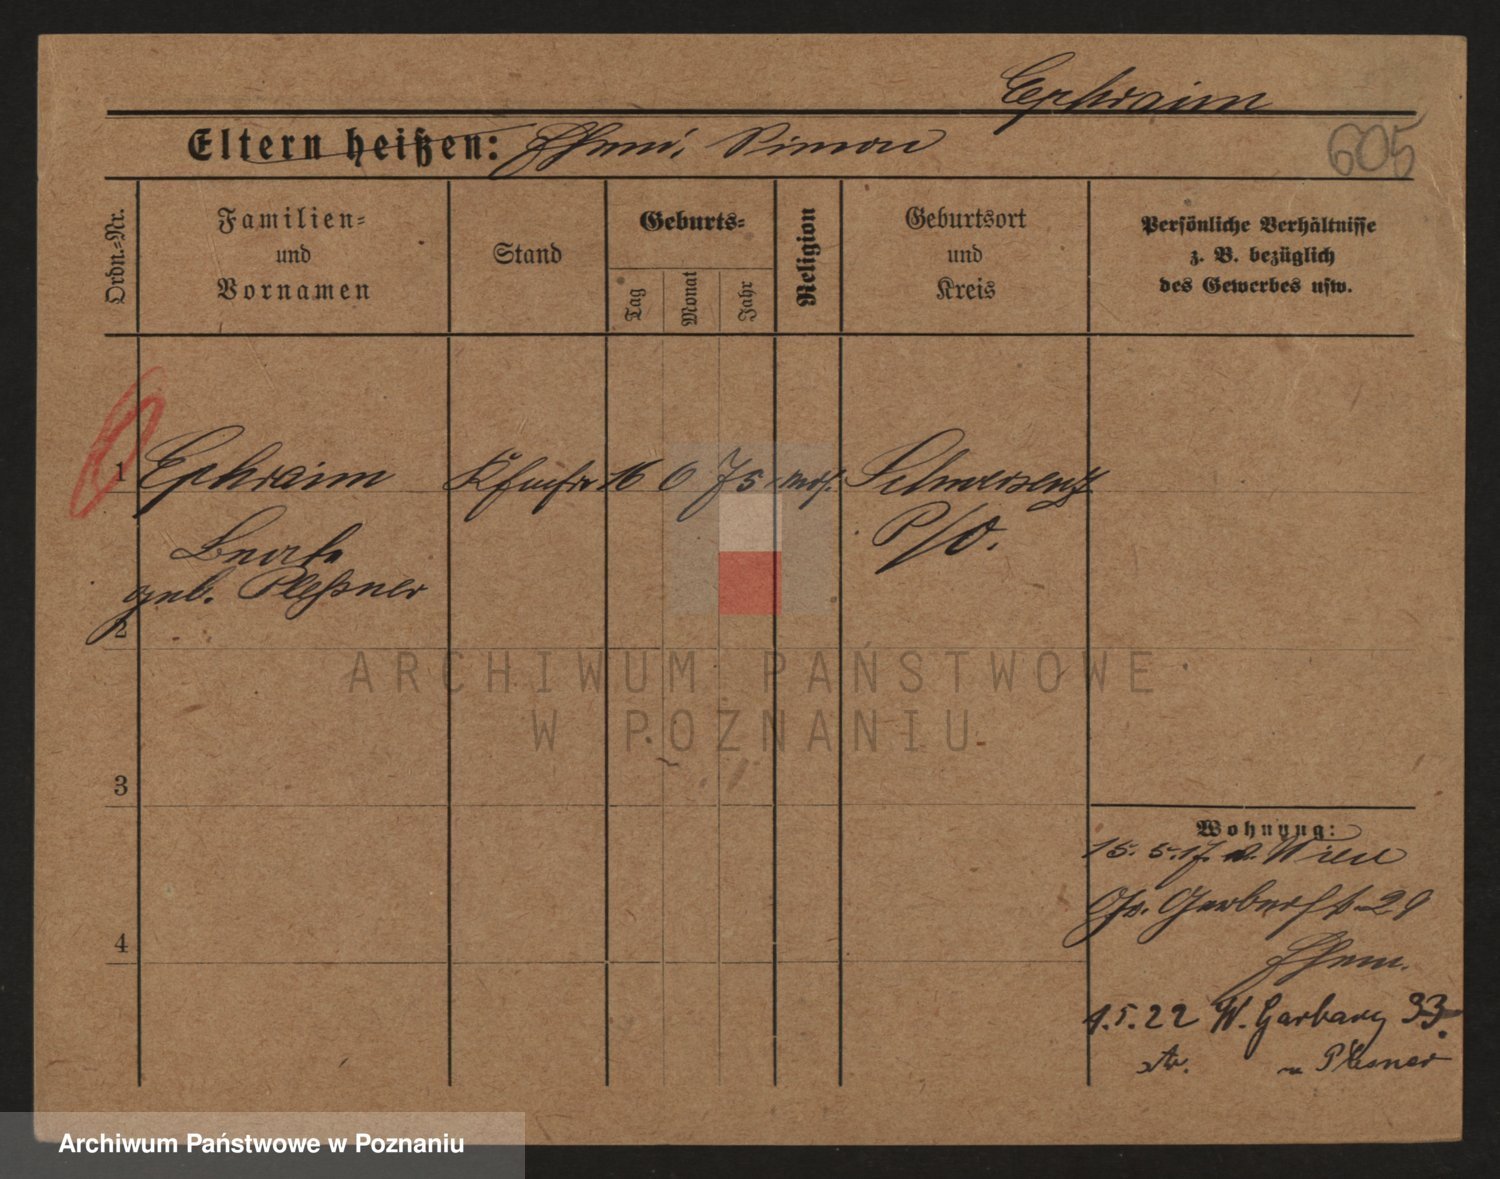 Ephraim
Eltern heißen: Ehem. Simon
605
Ordn.=Nr.
Familien=
und
Vornamen
Stand
Geburts=
Tag
Monat
Jahr
Religion
Geburtsort
und
Kreis
Persönliche Verhältnisse
z. B. bezüglich
des Gewerbes usw.
1 Ephraim Kfmsfr 16 6 75 mos. Schwersenz
P/O.
Beate
geb. Pleßner
2
3
4
Wohnung:
15. 5. 17. v. Wien
Gr. Gerberst. 29
Ehem.
1.5.22 W. Garbary 33.
Plesner
ARCHIWUM PAŃSTWOWE
W POZNANIU
Archiwum Państwowe w Poznaniu